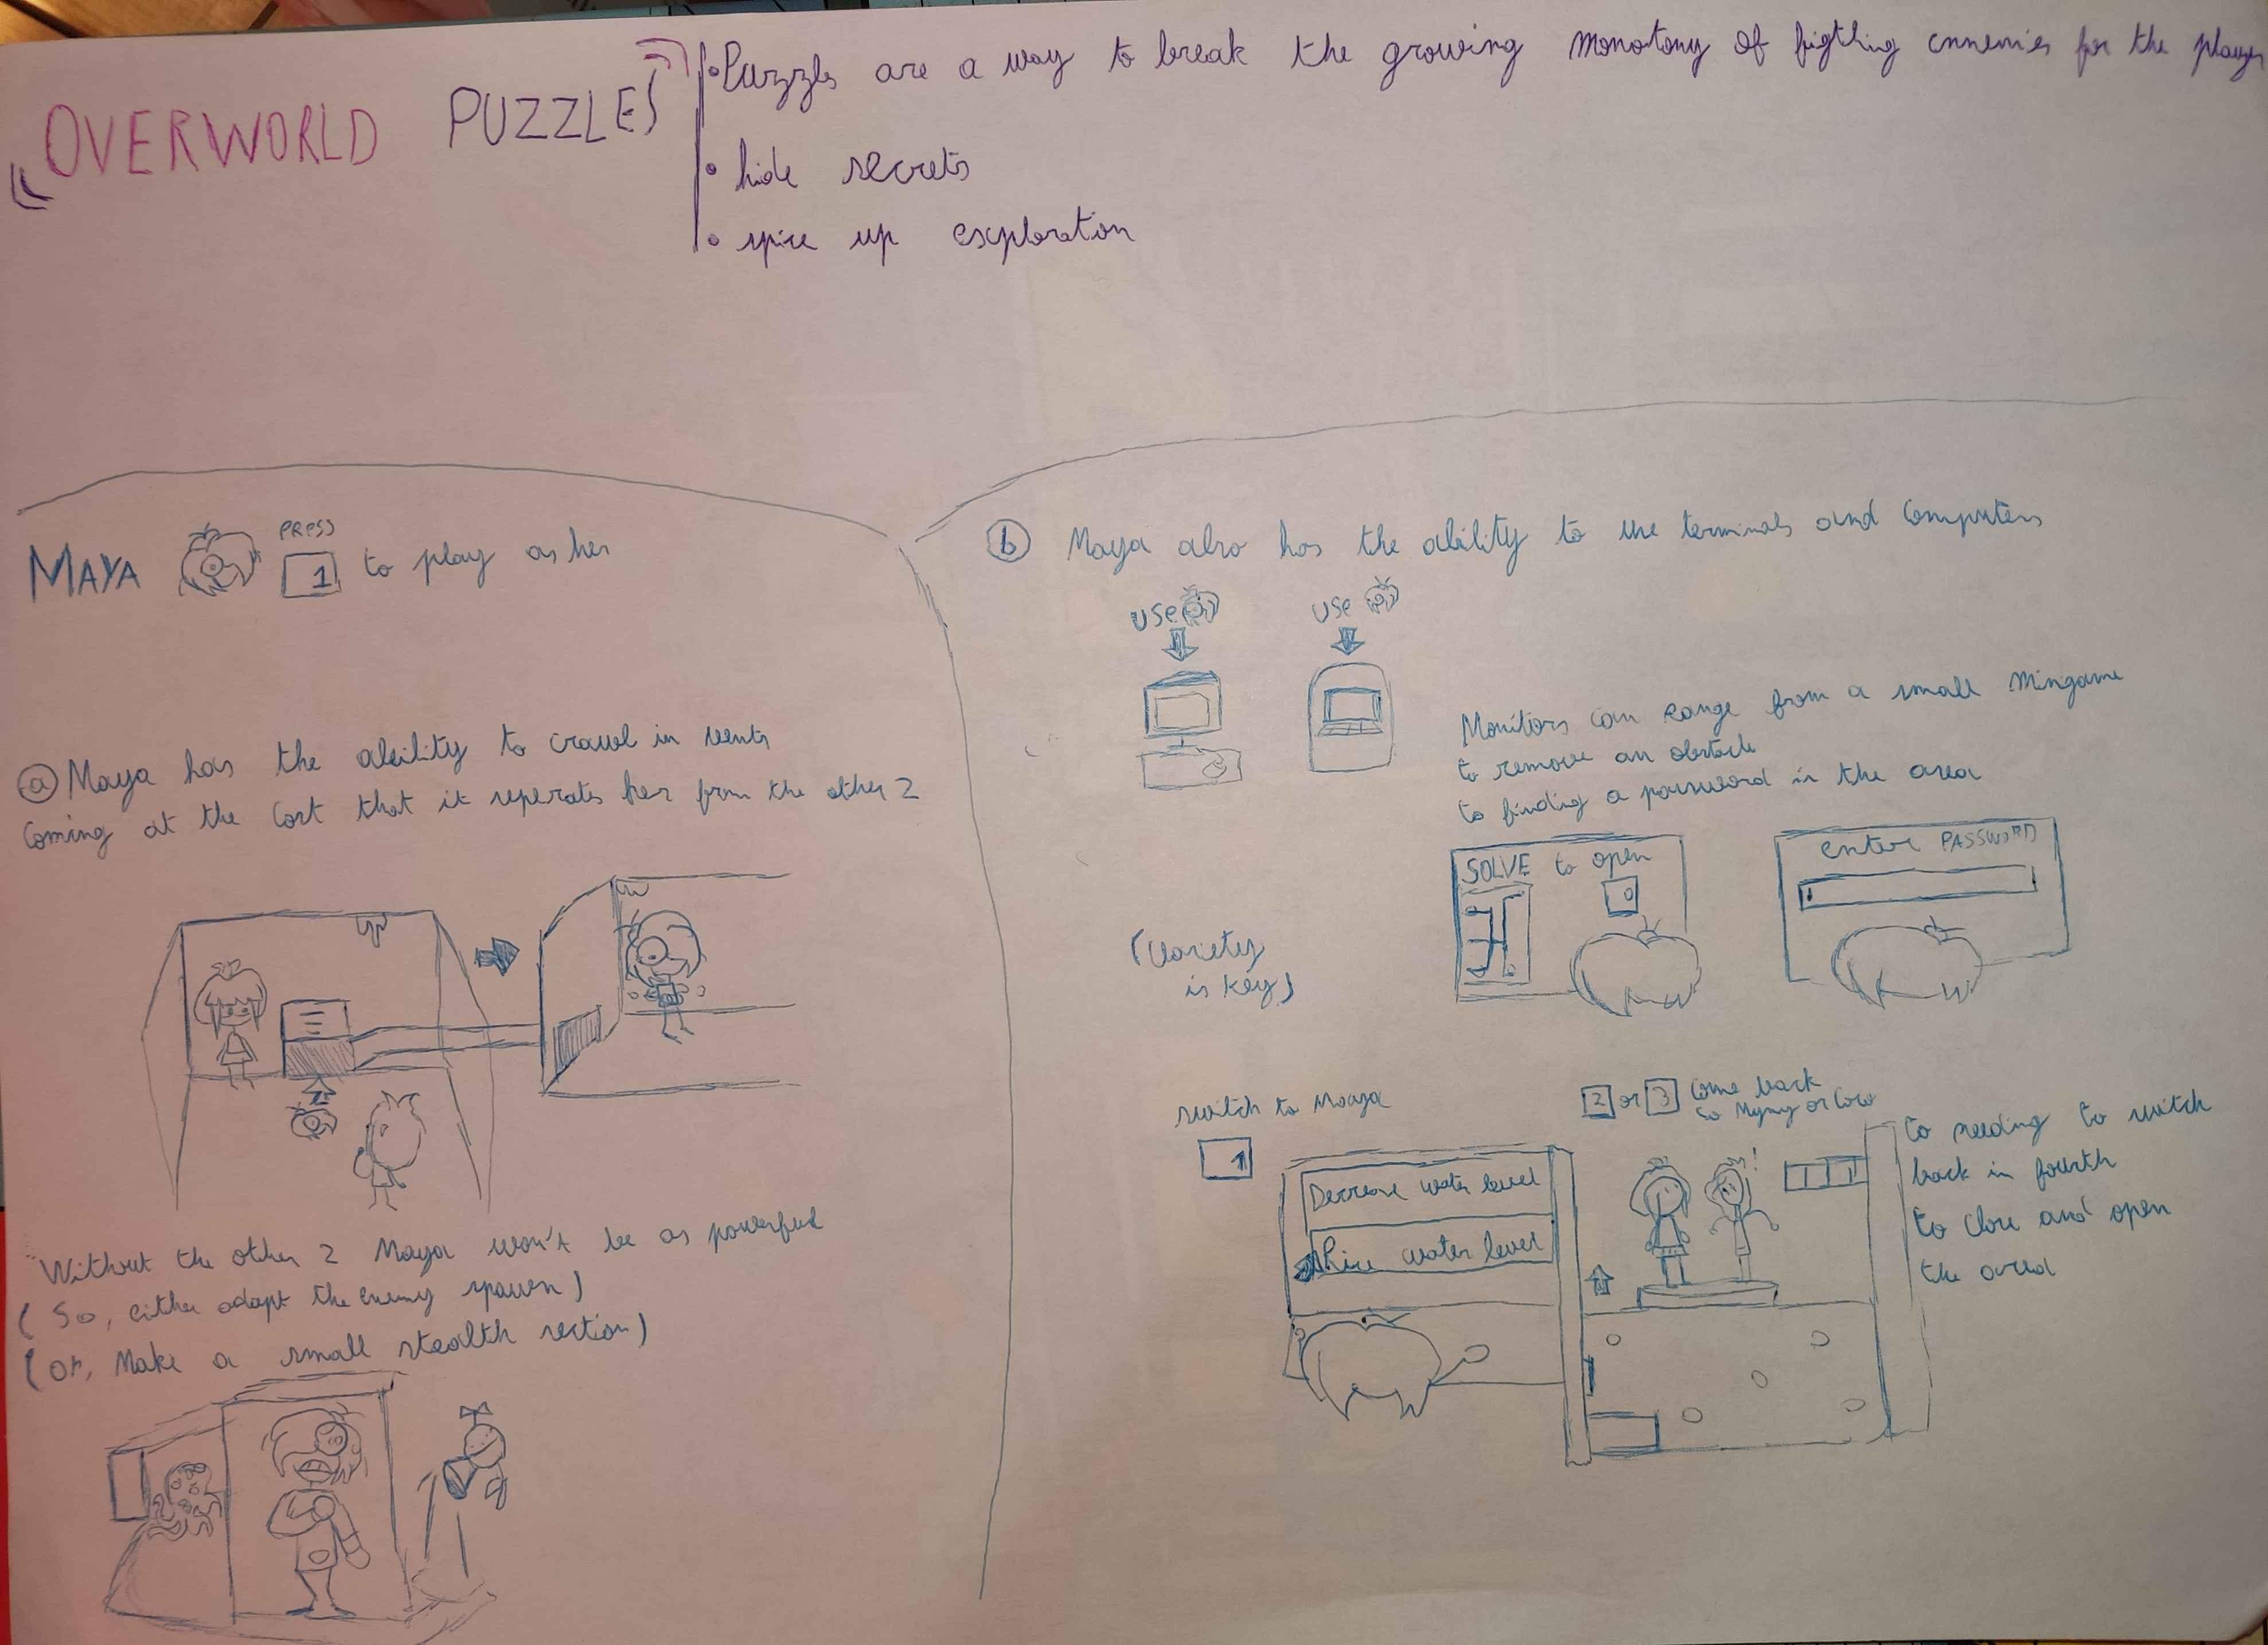 OVERWORLD PUZZLES
• Puzzles are a way to break the growing monotony of figthing ennemies for the player
• hide secrets
• spice up exploration
MAYA PRESS 1 to play as her
a Maya has the ability to crawl in vents
coming at the cost that it seperates her from the other 2
Without the other 2 Maya won't be as powerful
(So, either adapt the enemy spawn)
(or, Make a small stealth section)
b Maya also has the ability to use terminals and computers
USE
USE
Monitors can range from a small Mingame
to remove an obstacle
to finding a password in the area
(Variety
is key)
SOLVE to open
enter PASSWORD
switch to Maya
1
2 or 3 come back
to Mymy or Coco
Decrease water level
Rise water level
to needing to switch
back in fourth
to close and open
the area